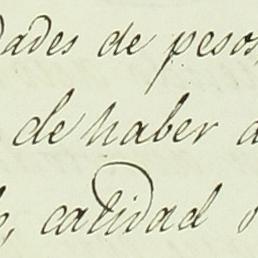 dades de pesos,
de haber
calidad